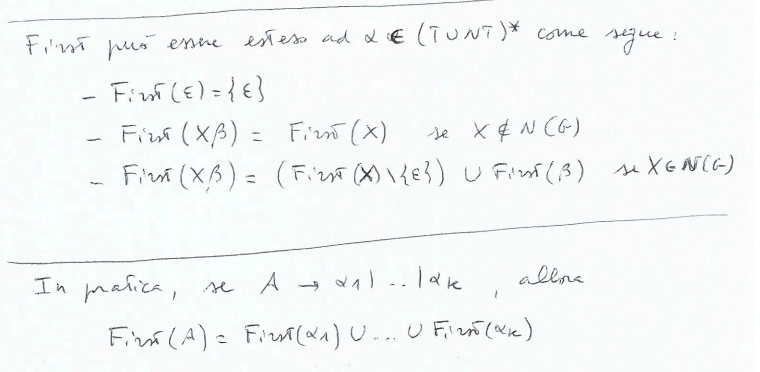 First può essere esteso ad α ∈ (T∪NT)* come segue:
- First(ε) = {ε}
- First(Xβ) = First(X) se X ∉ N(G)
- First(Xβ) = (First(X)\{ε}) ∪ First(β) se X ∈ N(G)
In pratica, se A → α1 | .. | αk, allora
First(A) = First(α1) ∪ ... ∪ First(αk)